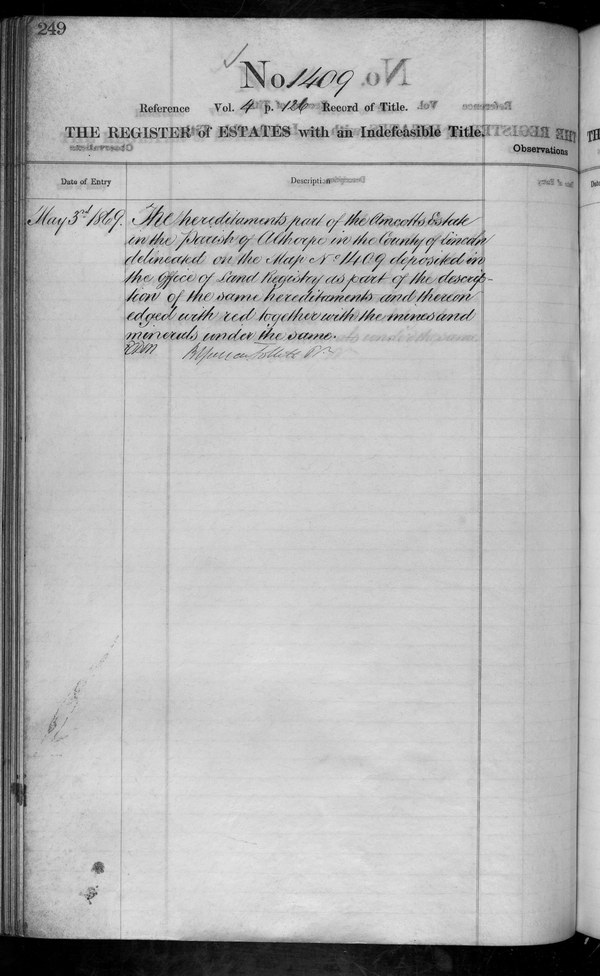 249
No 1409
Reference Vol. 4 p. 126 Record of Title.
THE REGISTER of ESTATES with an Indefeasible Title.
Observations
Date of Entry
Description
May 3rd 1869.
The hereditaments part of the Amcotts Estate
in the Parish of Althorpe in the County of Lincoln
delineated on the Map No 1409 deposited in
the Office of Land Registry as part of the descrip-
tion of the same hereditaments and thereon
edged with red together with the mines and
minerals under the same.
Follett